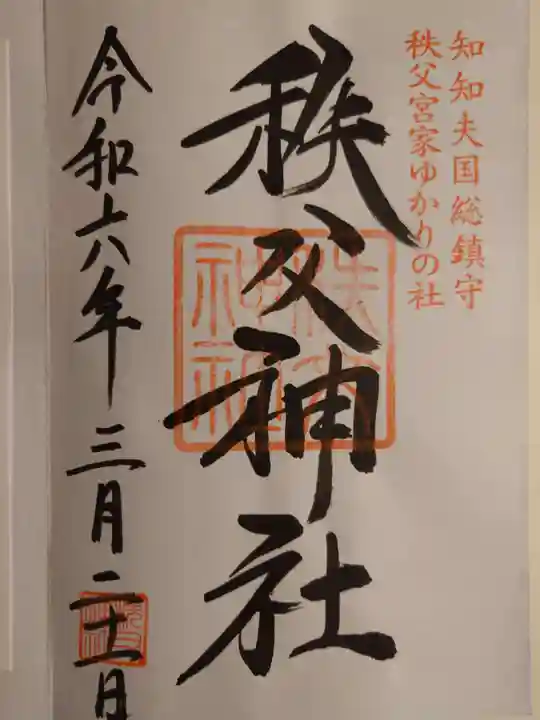 知知夫国総鎮守
秩父宮家ゆかりの社
秩父神社
秩父神社
令和六年三月二十一日